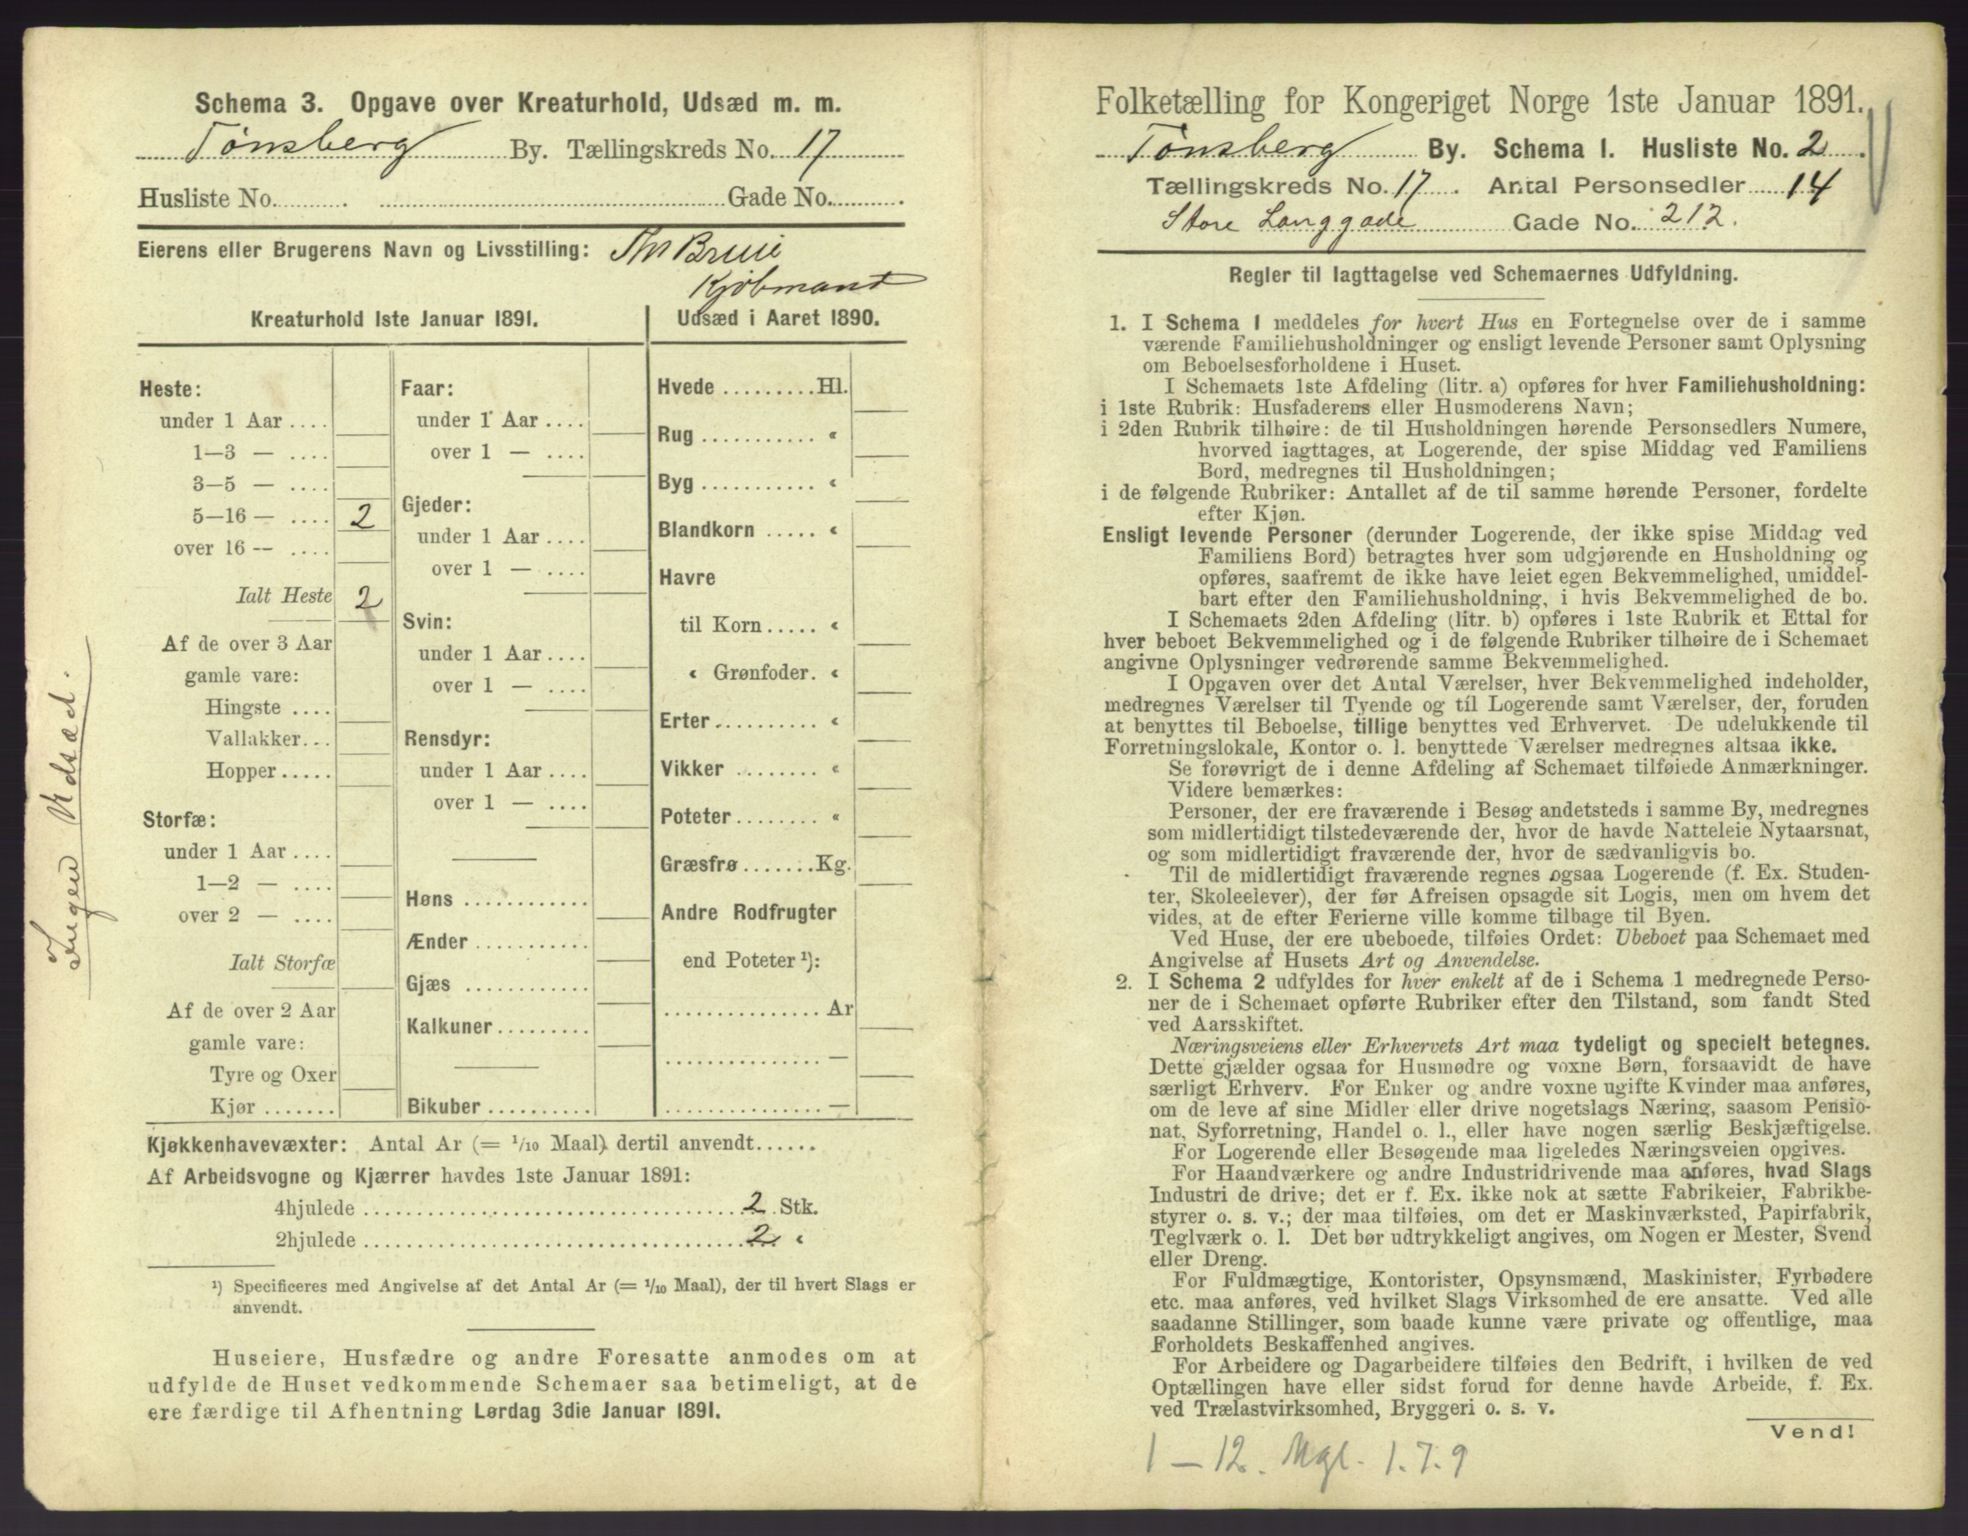 Schema 3. Opgave over Kreaturhold, Udsæd m. m.
Tønsberg By. Tællingskreds No. 17
Husliste No. Gade No.
Eierens eller Brugerens Navn og Livsstilling: Th Bruii
Kjøbmand
Kreaturhold 1ste Januar 1891.
Heste:
under 1 Aar ....
1—3 — ....
3—5 — ....
5—16 — .... 2
over 16 — ....
Ialt Heste 2
Af de over 3 Aar
gamle vare:
Hingste ....
Vallakker...
Hopper.....
Storfæ:
under 1 Aar ....
1—2 — ....
over 2 — ....
Ialt Storfæ
Af de over 2 Aar
gamle vare:
Tyre og Oxer
Kjør .......
Faar:
under 1 Aar ....
over 1 — ....
Gjeder:
under 1 Aar ....
over 1 — ....
Svin:
under 1 Aar ....
over 1 — ....
Rensdyr:
under 1 Aar ....
over 1 — ....
Høns ............
Ænder ...........
Gjæs ............
Kalkuner.........
Bikuber ..........
Udsæd i Aaret 1890.
Hvede .........Hl.
Rug ........... «
Byg ........... «
Blandkorn ..... «
Havre
til Korn ..... «
« Grønfoder. «
Erter.......... «
Vikker ........ «
Poteter........ «
Græsfrø.......Kg.
Andre Rodfrugter
end Poteter ¹):
............... Ar
............... —
............... —
Kjøkkenhavevæxter: Antal Ar (= 1/10 Maal) dertil anvendt......
Af Arbeidsvogne og Kjærrer havdes 1ste Januar 1891:
4hjulede .................................. 2 Stk.
2hjulede .................................. 2 «
¹) Specificeres med Angivelse af det Antal Ar (= 1/10 Maal), der til hvert Slags er
anvendt.
Huseiere, Husfædre og andre Foresatte anmodes om at
udfylde de Huset vedkommende Schemaer saa betimeligt, at de
ere færdige til Afhentning Lørdag 3die Januar 1891.
Ingen Udsæd.
Folketælling for Kongeriget Norge 1ste Januar 1891.
Tønsberg By. Schema 1. Husliste No. 2
Tællingskreds No. 17. Antal Personsedler 14
Store Langgade Gade No. 212.
Regler til Iagttagelse ved Schemaernes Udfyldning.
1. I Schema 1 meddeles for hvert Hus en Fortegnelse over de i samme
værende Familiehusholdninger og ensligt levende Personer samt Oplysning
om Beboelsesforholdene i Huset.
I Schemaets 1ste Afdeling (litr. a) opføres for hver Familiehusholdning:
i 1ste Rubrik: Husfaderens eller Husmoderens Navn;
i 2den Rubrik tilhøire: de til Husholdningen hørende Personsedlers Numere,
hvorved iagttages, at Logerende, der spise Middag ved Familiens
Bord, medregnes til Husholdningen;
i de følgende Rubriker: Antallet af de til samme hørende Personer, fordelte
efter Kjøn.
Ensligt levende Personer (derunder Logerende, der ikke spise Middag ved
Familiens Bord) betragtes hver som udgjørende en Husholdning og
opføres, saafremt de ikke have leiet egen Bekvemmelighed, umiddel-
bart efter den Familiehusholdning, i hvis Bekvemmelighed de bo.
I Schemaets 2den Afdeling (litr. b) opføres i 1ste Rubrik et Ettal for
hver beboet Bekvemmelighed og i de følgende Rubriker tilhøire de i Schemaet
angivne Oplysninger vedrørende samme Bekvemmelighed.
I Opgaven over det Antal Værelser, hver Bekvemmelighed indeholder,
medregnes Værelser til Tyende og til Logerende samt Værelser, der, foruden
at benyttes til Beboelse, tillige benyttes ved Erhvervet. De udelukkende til
Forretningslokale, Kontor o. l. benyttede Værelser medregnes altsaa ikke.
Se forøvrigt de i denne Afdeling af Schemaet tilføiede Anmærkninger.
Videre bemærkes:
Personer, der ere fraværende i Besøg andetsteds i samme By, medregnes
som midlertidigt tilstedeværende der, hvor de havde Natteleie Nytaarsnat,
og som midlertidigt fraværende der, hvor de sædvanligvis bo.
Til de midlertidigt fraværende regnes ogsaa Logerende (f. Ex. Studen-
ter, Skoleelever), der før Afreisen opsagde sit Logis, men om hvem det
vides, at de efter Ferierne ville komme tilbage til Byen.
Ved Huse, der ere ubeboede, tilføies Ordet: Ubeboet paa Schemaet med
Angivelse af Husets Art og Anvendelse.
2. I Schema 2 udfyldes for hver enkelt af de i Schema 1 medregnede Perso-
ner de i Schemaet opførte Rubriker efter den Tilstand, som fandt Sted
ved Aarsskiftet.
Næringsveiens eller Erhvervets Art maa tydeligt og specielt betegnes.
Dette gjælder ogsaa for Husmødre og voxne Børn, forsaavidt de have
særligt Erhverv. For Enker og andre voxne ugifte Kvinder maa anføres,
om de leve af sine Midler eller drive nogetslags Næring, saasom Pensio-
nat, Syforretning, Handel o. l., eller have nogen særlig Beskjæftigelse.
For Logerende eller Besøgende maa ligeledes Næringsveien opgives.
For Haandværkere og andre Industridrivende maa anføres, hvad Slags
Industri de drive; det er f. Ex. ikke nok at sætte Fabrikeier, Fabrikbe-
styrer o. s. v.; der maa tilføies, om det er Maskinværksted, Papirfabrik,
Teglværk o. l. Det bør udtrykkeligt angives, om Nogen er Mester, Svend
eller Dreng.
For Fuldmægtige, Kontorister, Opsynsmænd, Maskinister, Fyrbødere
etc. maa anføres, ved hvilket Slags Virksomhed de ere ansatte. Ved alle
saadanne Stillinger, som baade kunne være private og offentlige, maa
Forholdets Beskaffenhed angives.
For Arbeidere og Dagarbeidere tilføies den Bedrift, i hvilken de ved
Optællingen have eller sidst forud for denne havde Arbeide, f. Ex.
ved Trælastvirksomhed, Bryggeri o. s. v.
Vend!
1 — 12. Mgl. 1.7.9